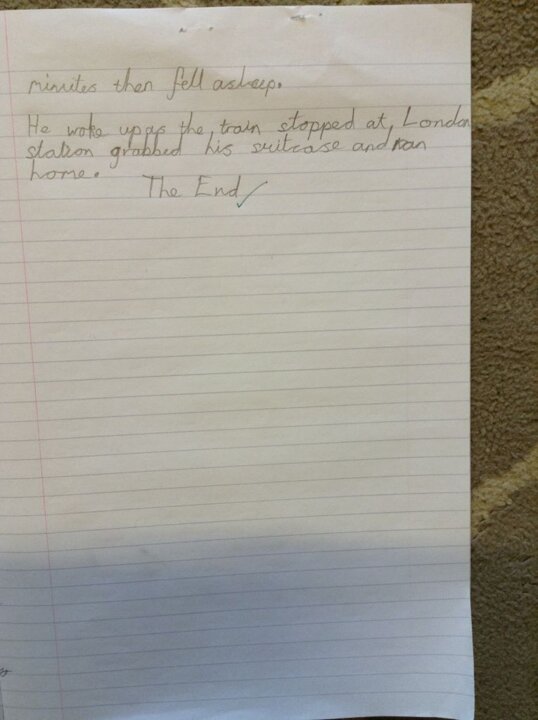 minutes then fell asleep.
He woke up as the train stopped at, London
station grabbed his suitcase and ran
home.
The End